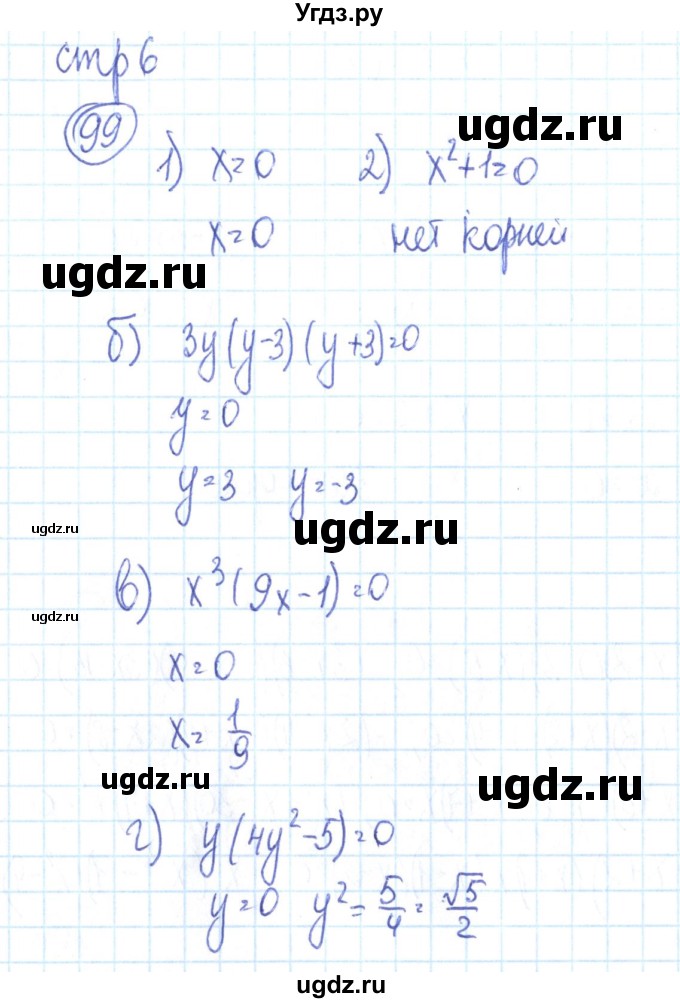 Угдз.ру
стр 6
99
ugdz.ru
1) x=0 2) x²+1=0
x=0 нет корней
ugdz.ru
б) 3y(y-3)(y+3)=0
y=0
y=3 y=-3
ugdz.ru ugdz.ru
в) x³(9x-1)=0
ugdz.ru
x=0
x= 1/9
ugdz.ru ugdz.ru
г) y(4y²-5)=0
y=0 y²= 5/4 = √5/2
ugdz.ru